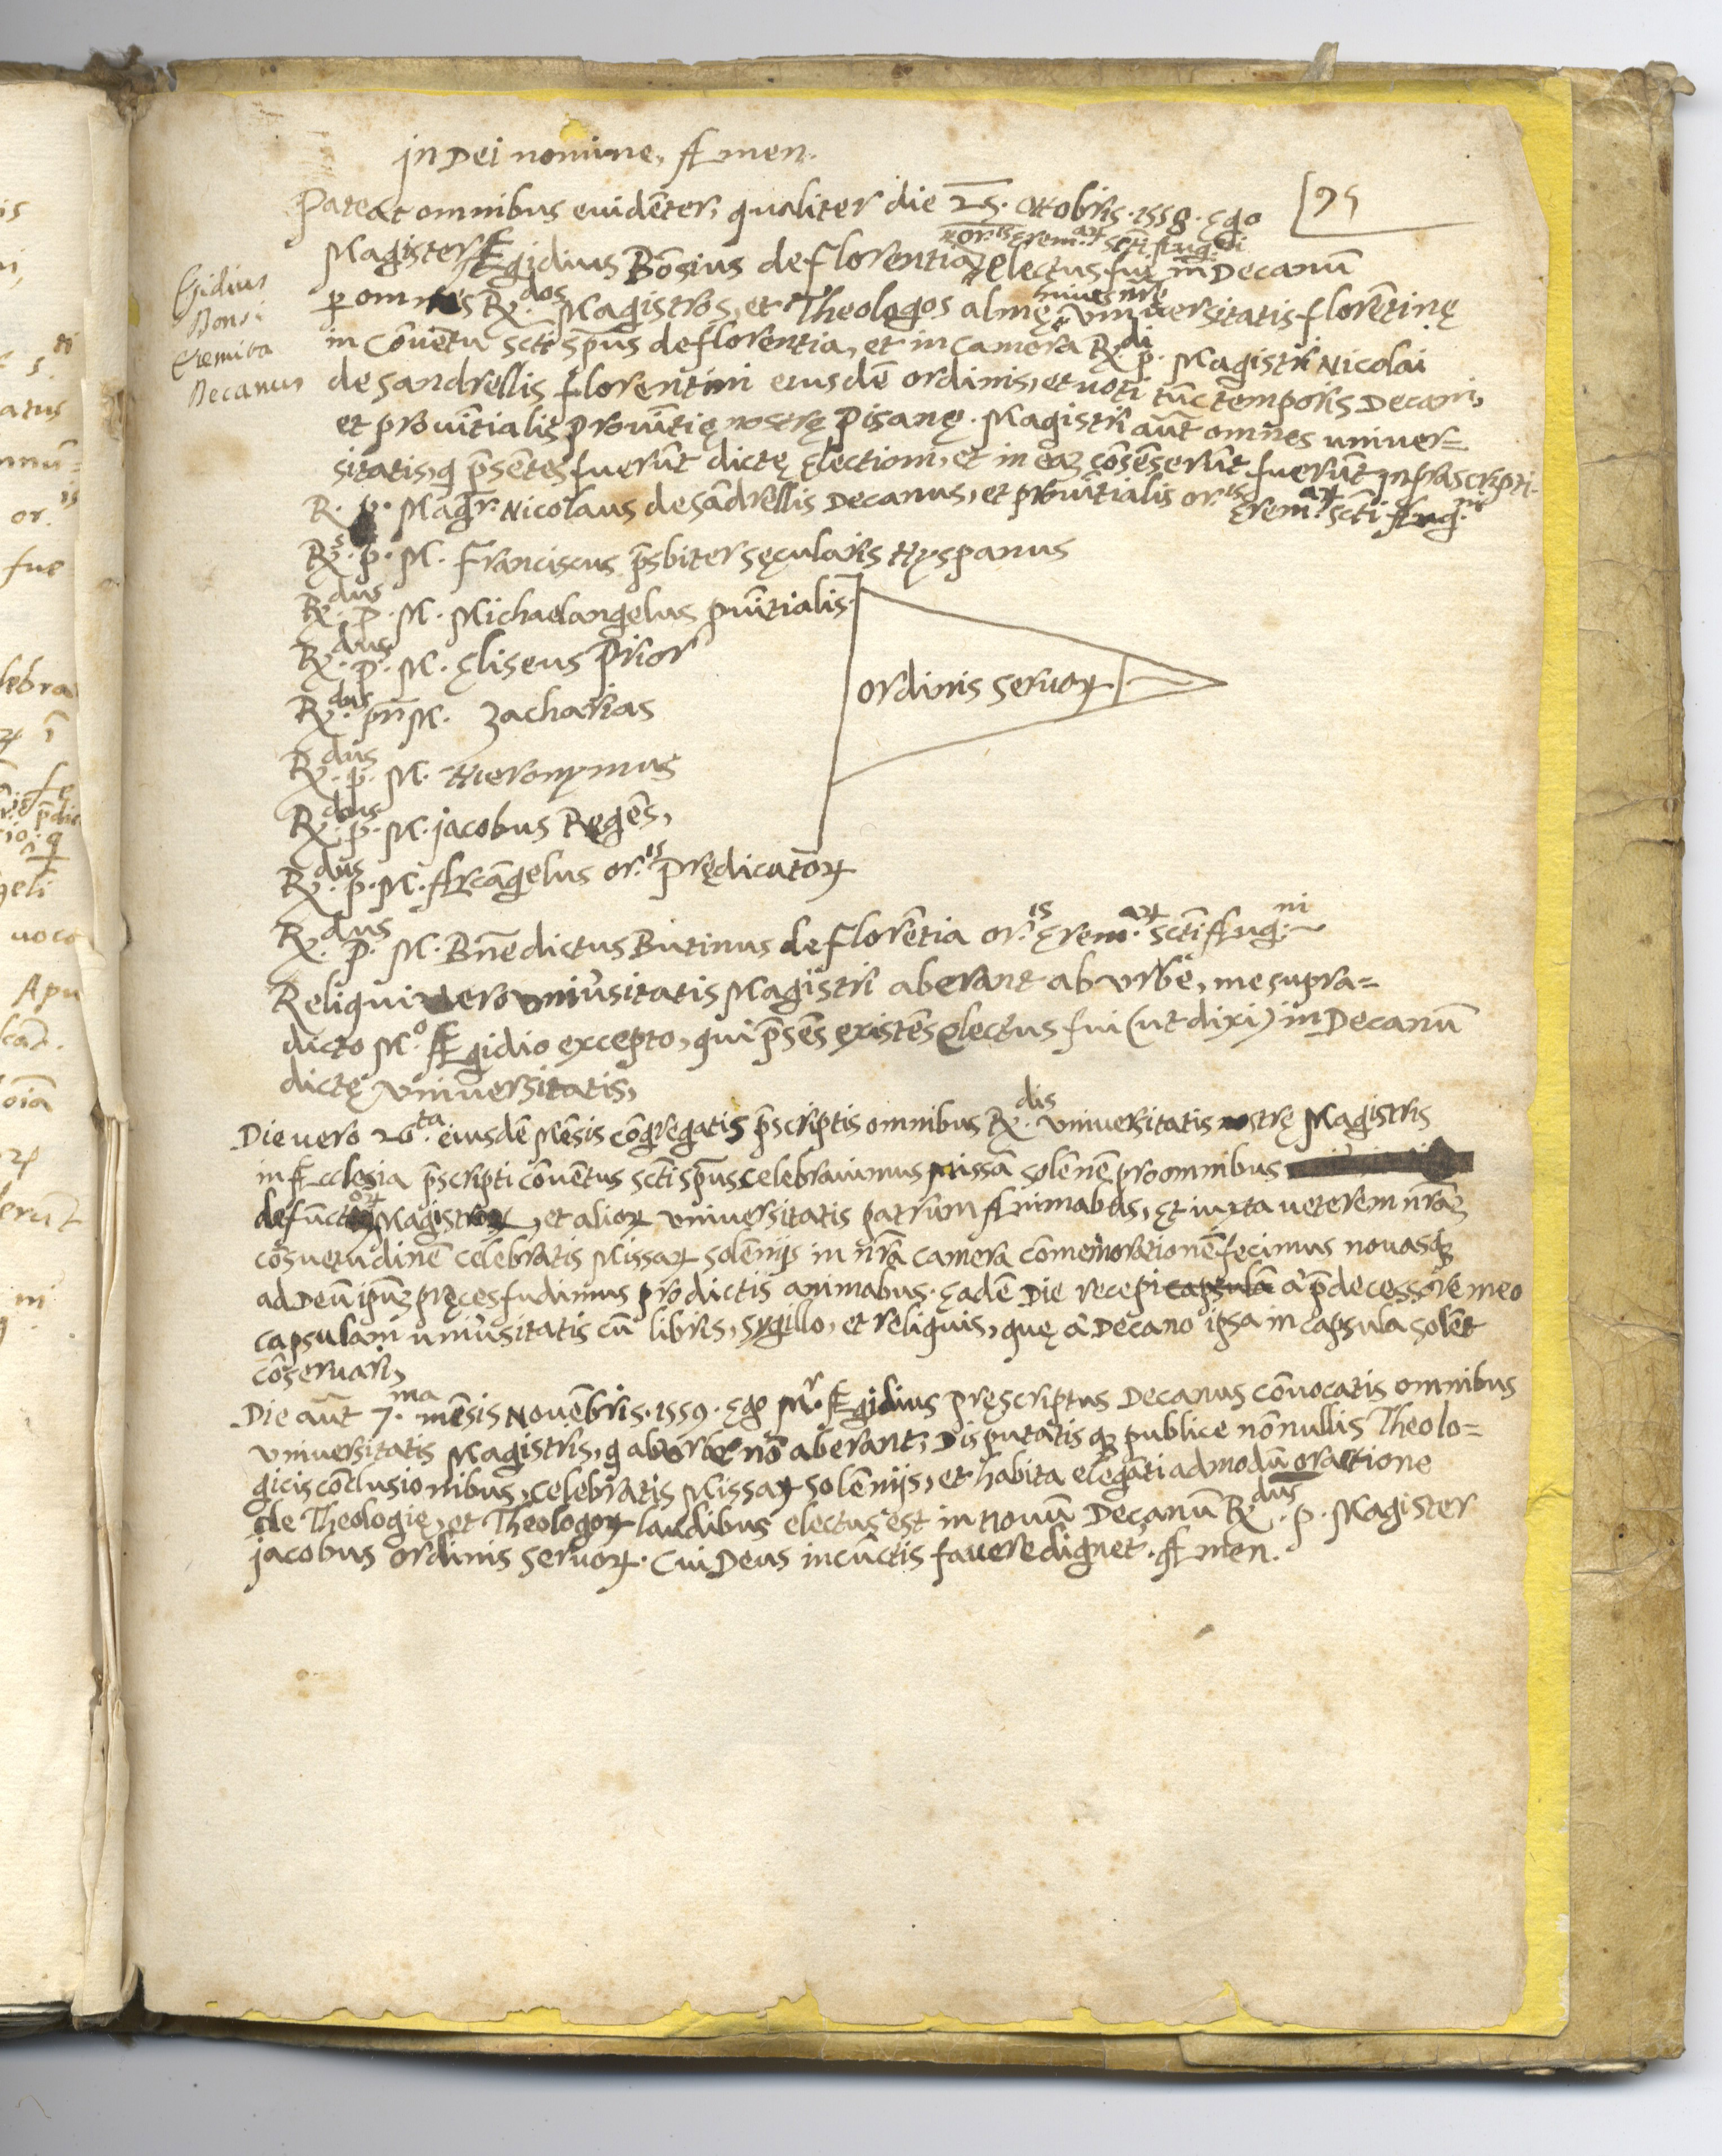 jn Dei nomine, Amen.
Pateat omnibus euidēter, qualiter die 25. Ottobris. 1558. Ego
95
or.is Erem.arꝝ Scti Aug.ni
Magister Ægidius Bōsius de Florentia, electus fui in Decanū
Egidius
Bonsi
Eremita
Decanus
huius nrę
ꝑ omnes Rx.dos Magistros, et Theologos almę Vniuersitatis Florētinę
in Cōuētu Scti Spūs de Florentia, et in camera Rx.di p. Magistri Nicolai
de Sandrellis Florentini eiusdē ordinis, et noti tūc temporis Decani,
et prouītialis prouītię nostrę Pisanę. Magistri aūt omnes uniuer=
sitatis, q p̄sētes fuerūt dictę Electioni, et in eaȝ cōsēserūt fuerūt Infrascripti.
R. p. Magr. Nicolaus de Sādrellis Decanus, et prouītialis or.is Erem.arꝝ Scti Aug.ni
Rx.s p. M. Franciscus p̄sbiter sęcularis Hyspanus
Rx.dus p. M. Michaelangelus ꝓuītialis
Rx.dus p. M. Eliseus Prior
ordinis seruoꝝ
Rx.dus pr̄ M. Zacharias
Rx.dus p. M. Hieronymus
Rx.dus p. M. jacobus Regēs,
Rx.dus p. M. Arcāgelus or.is prędicatoꝝ
Rx.dus p. M. Bn̄edictus Butinus de Florētia or.is Erem.arꝝ Scti Aug.ni
Reliqui uero uniūsitatis Magistri aberant ab urbe, me supra=
dicto M.o Ægidio excepto, qui p̄sēs existēs electus fui (ut dixi) in Decanū
dictę Vniuersitatis,
Die uero 26.ta eiusdē mēsis cōgregatis p̄scriptis omnibus Rx.dis Vniuersitatis nostrę Magistris
in Ecclesia p̄scripti cōuētus Scti Spūs celebrauimus Missā solēnē pro omnibus
defūctoꝝ Magistroꝝ, et alioꝝ Vniuersitatis patrum Animabus, Et iuxta ueterem nr̄aȝ
cōsuetudinē celebratis Missaꝝ solēnijs in nr̄a camera cōmemorationē fecimus nouasqȝ
ad Deū ipūȝ pręces fudimus pro dictis animabus. Eadē Die recepi capsulā à p̄decessore meo
capsulam uniūsitatis cū libris, sygillo, et reliquis, quę à Decano ipsa in capsula solēt
cōseruari,
Die aūt 7.ma mēsis Nouēbris. 1559. Ego Mr. Ægidius pręscriptus Decanus cōuocatis omnibus
Vniuersitatis Magistris, q ab urbe nō aberant, Disputatisqȝ publice nōnullis Theolo=
gicis cōclusionibus, celebratis Missaꝝ solēnijs, et habita elegāti admodū oratione
de Theologię, et Theologoꝝ laudibus electus est in nouū Decanū Rx.dus p. Magister
jacobus ordinis seruoꝝ. Cui Deus in cūctis fauere dignet. Amen.